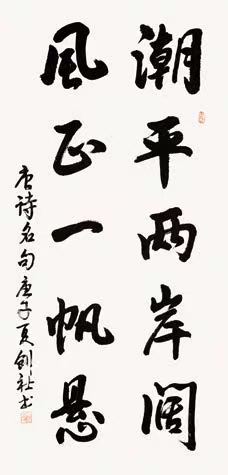 潮平两岸阔
风正一帆悬
唐诗名句庚子夏剑社书